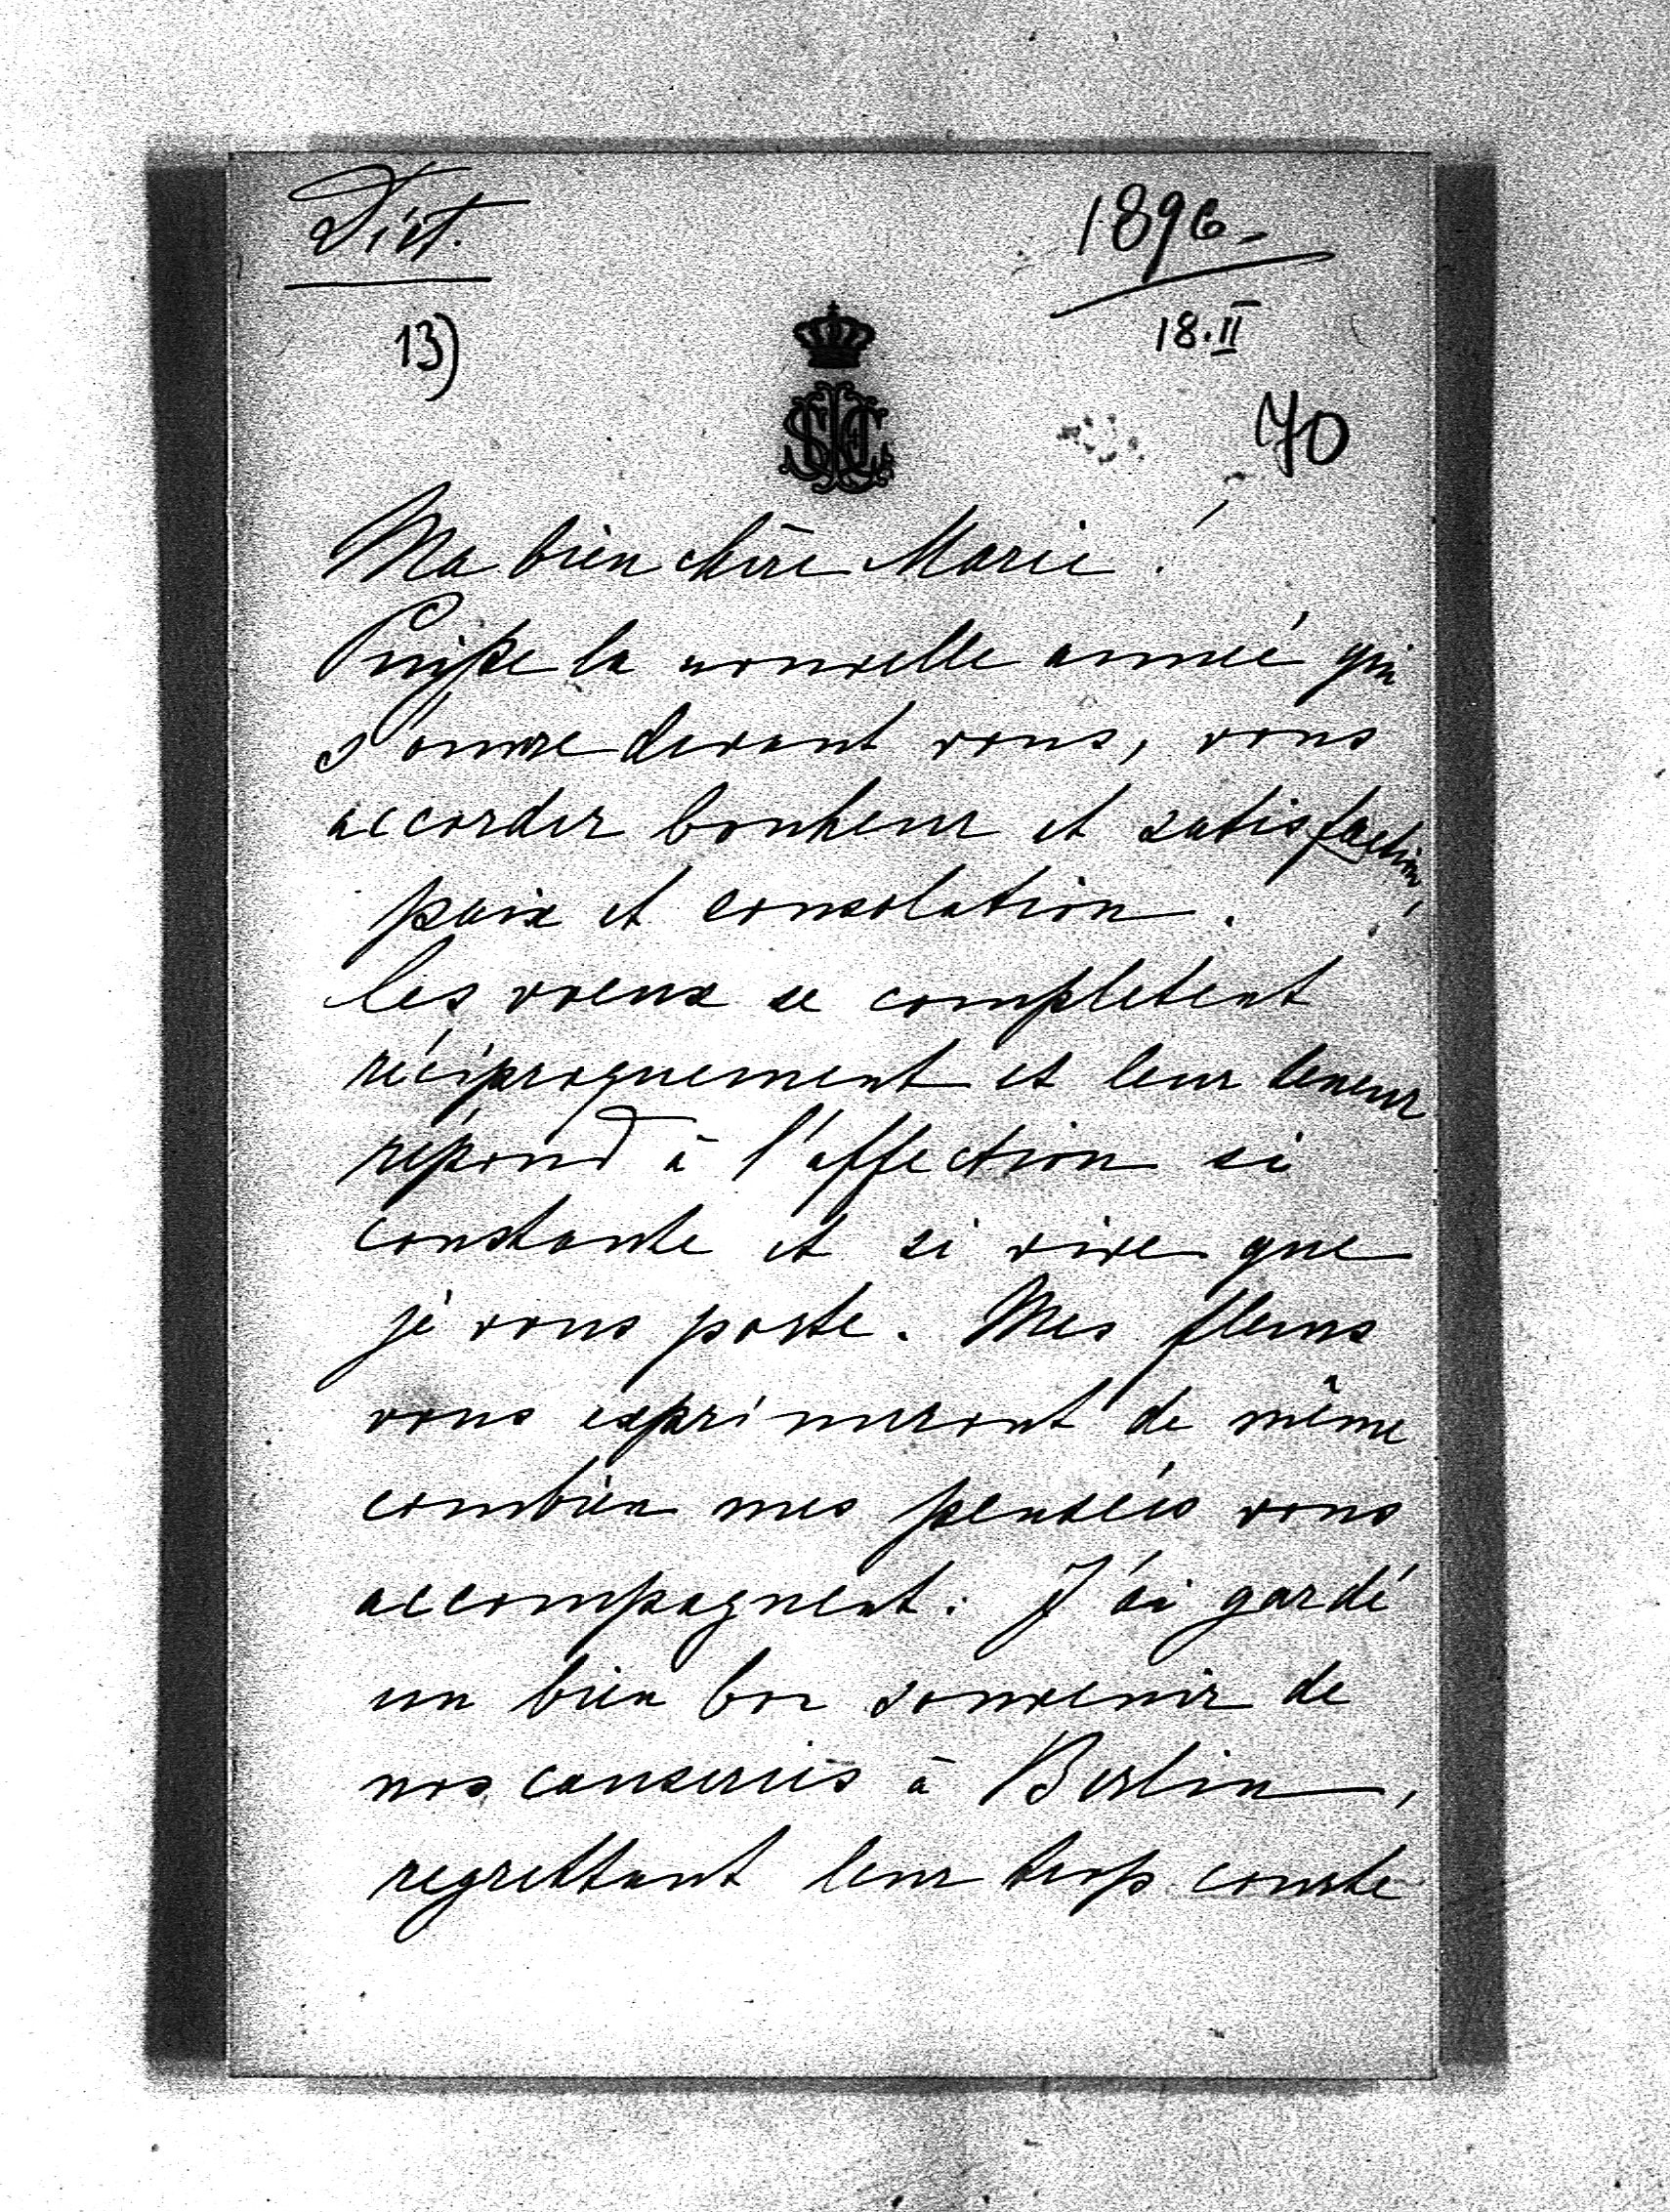 Dict.
1896.
13)
18.II
70
Ma bien chère Marie !
Puisse la nouvelle année qui
s'ouvre devant vous, vous
accorder bonheur et satisfaction,
paix et consolation.
Les voeux se complètent
réciproquement et leur teneur
répond à l'affection si
constante et si vive que
je vous porte. Mes fleurs
vous exprimeront de même
combien mes pensées vous
accompagnent. J'ai gardé
un bien bon souvenir de
nos causeries à Berlin,
regrettant leur trop courte